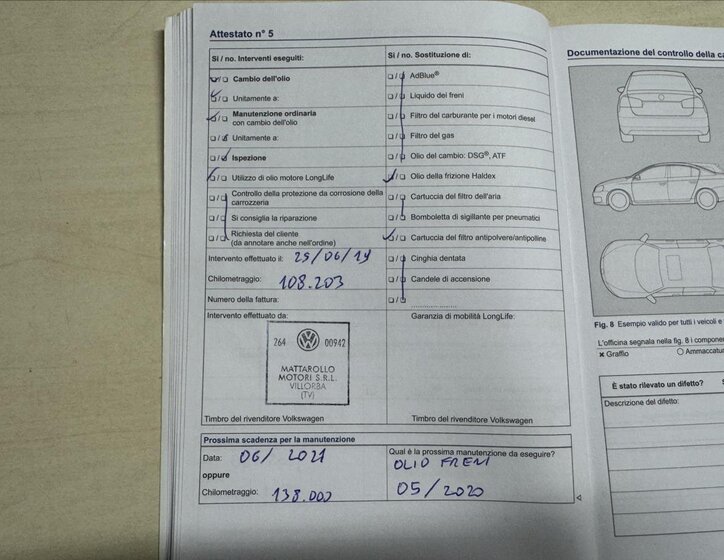 Attestato n° 5
Si / no. Interventi eseguiti:
Cambio dell'olio
Unitamente a:
Manutenzione ordinaria
con cambio dell'olio
Unitamente a:
Ispezione
Utilizzo di olio motore LongLife
Controllo della protezione da corrosione della
carrozzeria
Si consiglia la riparazione
Richiesta del cliente
(da annotare anche nell'ordine)
Intervento effettuato il: 25/06/19
Chilometraggio: 108.203
Numero della fattura:
Intervento effettuato da:
264 00942
MATTAROLLO
MOTORI S.R.L.
VILLORBA
(TV)
Timbro del rivenditore Volkswagen
Si / no. Sostituzione di:
AdBlue®
Liquido dei freni
Filtro del carburante per i motori diesel
Filtro del gas
Olio del cambio: DSG®, ATF
Olio della frizione Haldex
Cartuccia del filtro dell'aria
Bomboletta di sigillante per pneumatici
Cartuccia del filtro antipolvere/antipolline
Cinghia dentata
Candele di accensione
Garanzia di mobilità LongLife:
Timbro del rivenditore Volkswagen
Prossima scadenza per la manutenzione
Data: 06/ 2021
oppure
Chilometraggio: 138.000
Qual è la prossima manutenzione da eseguire?
OLIO FRENI
05/2020
Documentazione del controllo della ca
Fig. 8 Esempio valido per tutti i veicoli e
L'officina segnala nella fig. 8 i componen
Graffio Ammaccatur
È stato rilevato un difetto?
Descrizione del difetto: